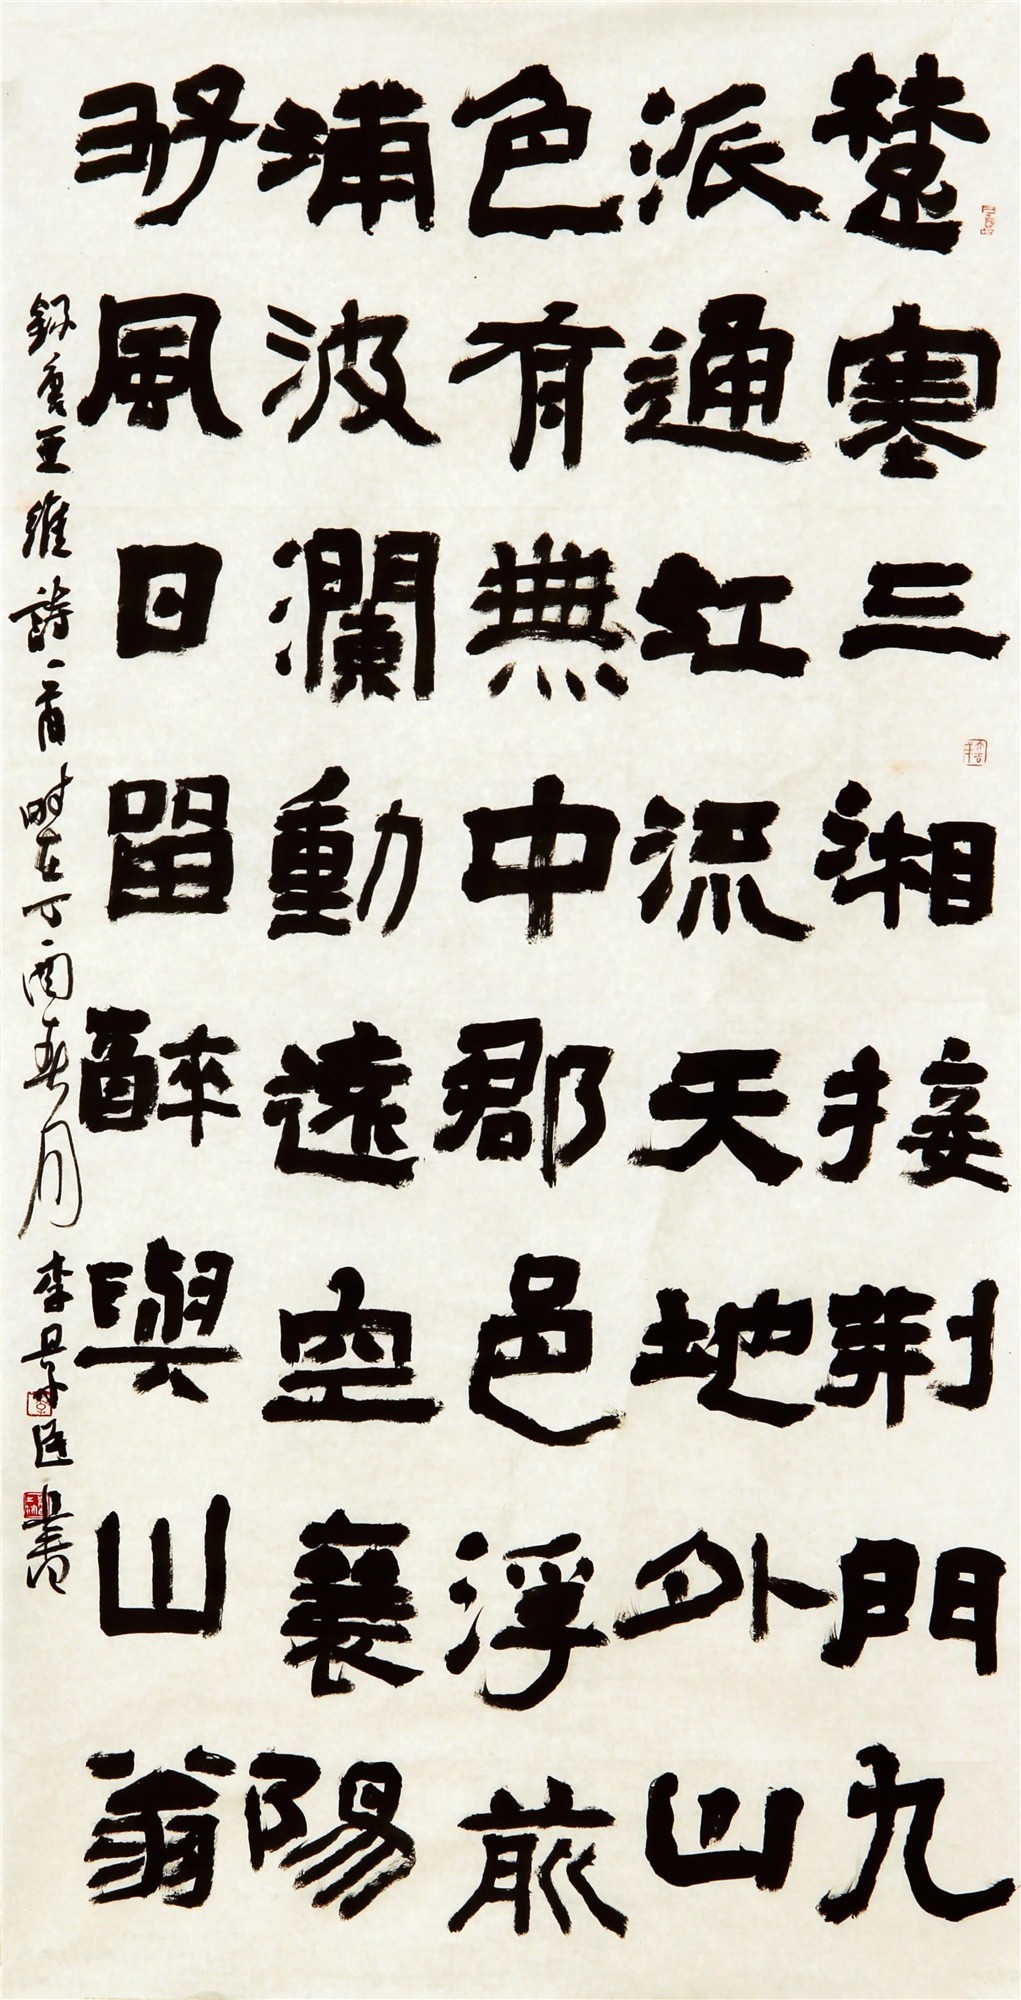 楚寒三湘接荆門九
派通江流天地外山
色有無中郡邑浮前
浦波瀾動遠空襄陽
好風日留醉與山翁
録唐王維詩一首時在丁酉春月李景
書